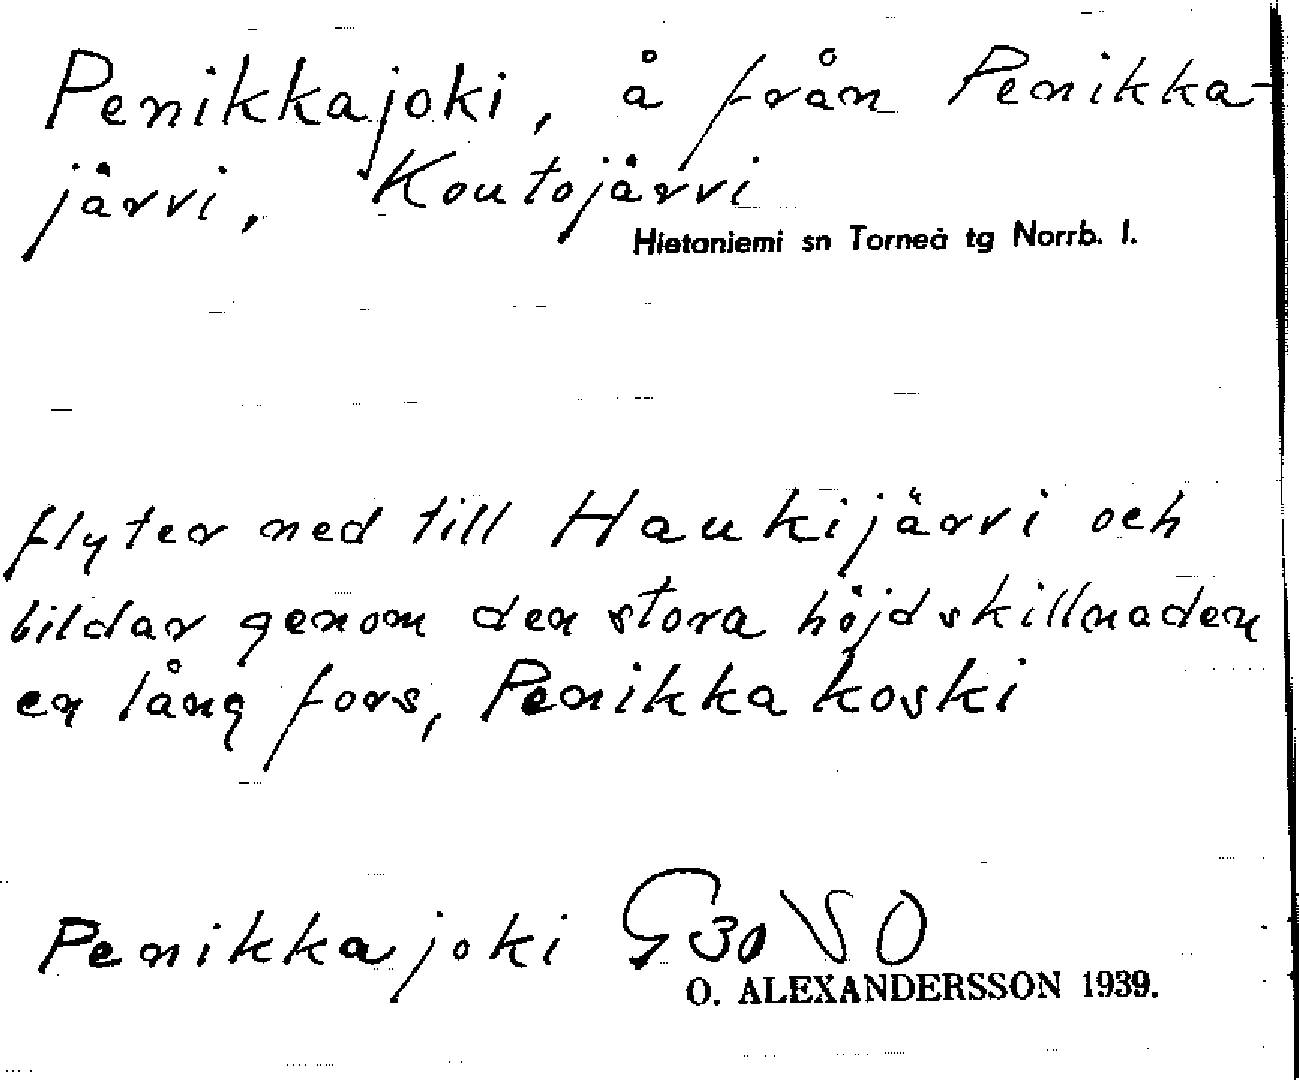 Penikkajoki, å från Penikka-
järvi, Koutojärvi
Hietaniemi sn Torneå tg Norrb. l.
flyter ned till Haukijärvi och
bildar genom den stora höjdskillnaden
en lång fors, Penikkakoski
Penikkajoki G30 VSO
O. ALEXANDERSSON 1939.